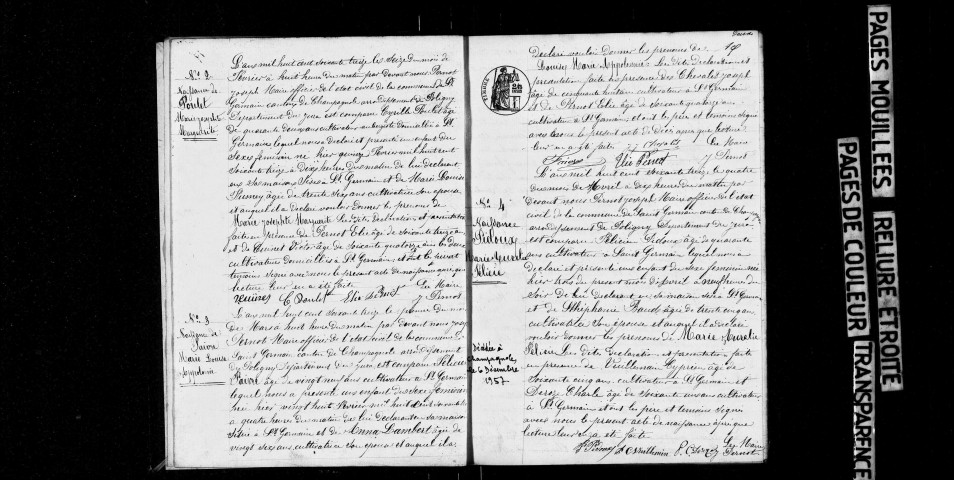 No 2
Naissance de
Poulet
Marie Josephte
Marguerite
L'an mil huit cent soixante treize le seize du mois de
Février à huit heures du matin par devant nous Pernot
Joseph Maire officier de l'état civil de la commune de St
Germain canton de Champagnole arrondissement de Poligny
Département du Jura est comparu Cyrille Poulet âgé
de quarante deux ans cultivateur domicilié à St
Germain lequel nous a déclaré et présenté un enfant du
sexe féminin né hier quinze Février mil huit cent
soixante treize à dix heures du matin de lui déclarant
en sa maison sise à St Germain et de Marie Louise
âgée de trente six ans cultivatrice son épouse
et auquel il a déclaré vouloir donner les prénoms de
Marie Josephte Marguerite Les dites déclaration et présentation
faites en présence de Pernot Elie âgé de soixante treize ans
et de Victor âgé de soixante quatorze ans les deux
cultivateurs domiciliés à St Germain, et ont le père et
témoins signé avec nous le présent acte de naissance après que
lecture leur en a été faite
Le Maire
C Poulet Elie Pernot J Pernot
No 3
Naissance de
Favre
Marie Louise
Appolonie
L'an mil huit cent soixante treize le premier du mois
de Mars à huit heures du matin par devant nous Joseph
Pernot Maire officier de l'état civil de la commune de
Saint Germain canton de Champagnole arrondissement
de Poligny Département du Jura est comparu Félicien
Favre âgé de vingt neuf ans cultivateur à St Germain
lequel nous a présenté un enfant du sexe féminin
né hier vingt huit Février mil huit cent soixante treize
à quatre heures du matin de lui déclarant en sa maison
sise à St Germain et de Anna Lambert âgée de
vingt six ans cultivatrice son épouse et auquel il a
déclaré vouloir donner les prénoms de
Louise Marie Appolonie Les dites déclaration et
présentation faites en présence de Chevalet Joseph
âgé de cinquante huit ans cultivateur à St Germain
et de Pernot Elie âgé de soixante quatorze ans
cultivateur à St Germain, et ont le père et témoins signé
avec nous le présent acte de après que lecture
leur en a été faite
Le Maire
Elie Pernot J Pernot
TIMBRE
No 4
Naissance
Pidoux
Marie Aurélie
Félicie
Décédée à
Champagnole
le 6 Décembre
1957
L'an mil huit cent soixante treize le quatre
du mois de Avril à dix heures du matin par
devant nous Pernot Joseph Maire officier de l'état
civil de la commune de Saint Germain canton de Champagnole
arrondissement de Poligny Département du Jura
est comparu Félicien Pidoux âgé de quarante
ans cultivateur à Saint Germain lequel nous a
déclaré et présenté un enfant du sexe féminin né
hier trois du présent mois d'Avril à neuf heures du
soir de lui déclarant en sa maison sise à St Germain
et de Stéphanie âgée de trente cinq ans
cultivatrice son épouse et auquel il a déclaré
vouloir donner les prénoms de Marie Aurélie
Félicie Les dites déclaration et présentation faites
en présence de Vuillemin Cyprien âgé de
soixante cinq ans cultivateur à St Germain et
Charle âgé de soixante six ans cultivateur
à St Germain et ont les père et témoins signé
avec nous le présent acte de naissance après que
lecture leur en a été faite
Le Maire
Vuillemin J Pernot
PAGES MOUILLEES
RELIURE ETROITE
PAGES DE COULEUR
TRANSPARENCE